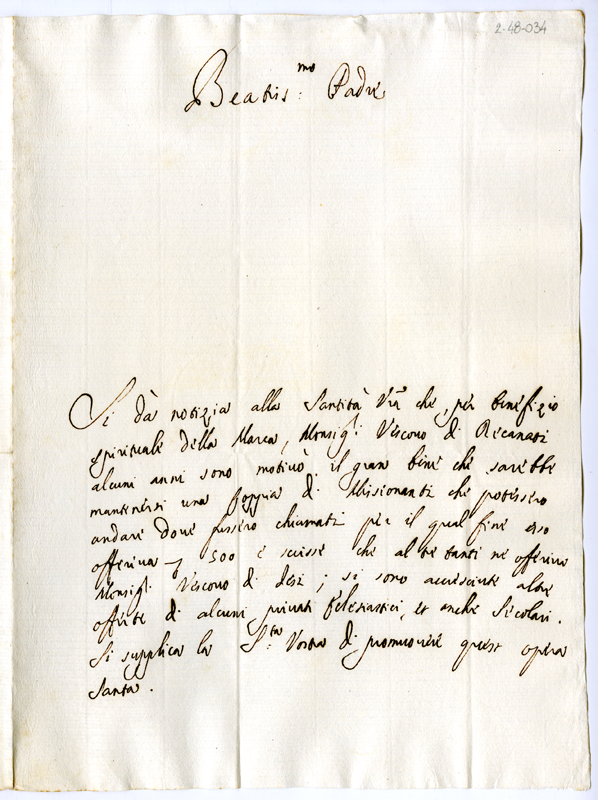 2-48-034
Beatis:mo Padre
Si dà notizia alla Santità Vra che, per benefizio
spirituale della Marca, Monsig: Vescovo di Recanati
alcuni anni sono motivò il gran bene che sarebbe
mantenersi una Coppia di Missionanti che potessero
andare dove fussero chiamati per il qual fine esso
offeriva 500 e scrisse che al tre tanti ne offeriva
Monsig: Vescovo di Jesi; si sono accresciute altre
offerte di alcuni privati Eclesiastici, et anche Secolari.
Si supplica la S:tà Vostra di promuovere quest opera
santa.